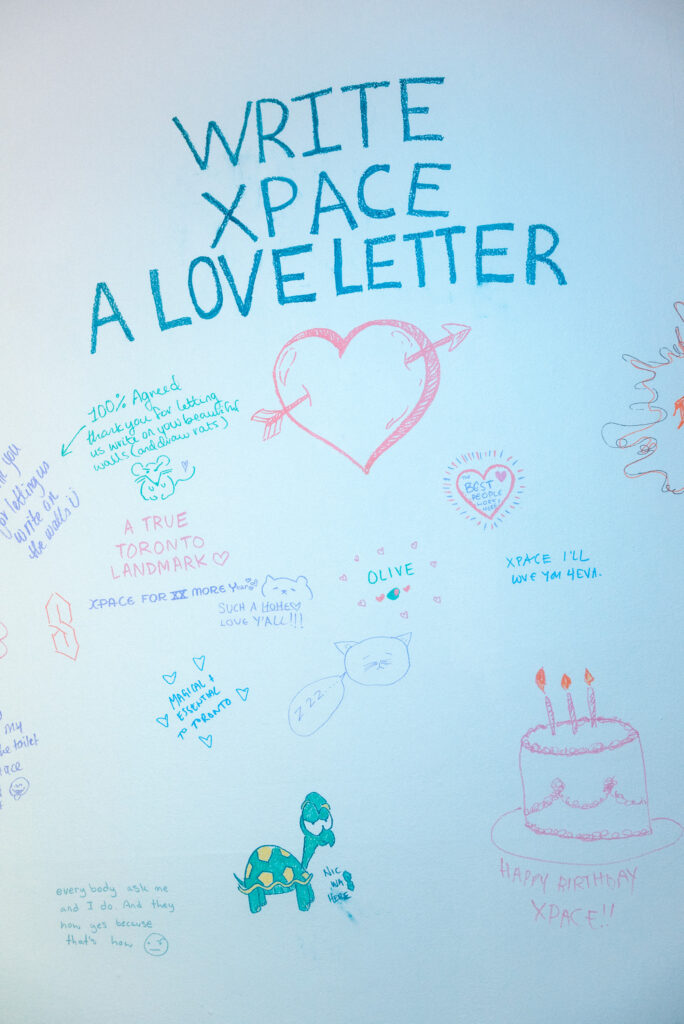 WRITE
XPACE
A LOVE LETTER
100% Agreed
thank you for letting
us write on your beautiful
walls (and draw rats)
you
for letting us
write on
the walls
THE
BEST
PEOPLE
WORK
HERE!
A TRUE
TORONTO
LANDMARK
XPACE FOR XX MORE Years
SUCH A HOME
LOVE Y'ALL!!!
OLIVE
XPACE I'LL
LOVE YOU 4EVA.
MAGICAL +
ESSENTIAL
TO TORONTO
ZZZ...
my
toilet
NIC
WAS
HERE
HAPPY BIRTHDAY
XPACE!!
everybody ask me
and I do. And they
how yes because
that's how